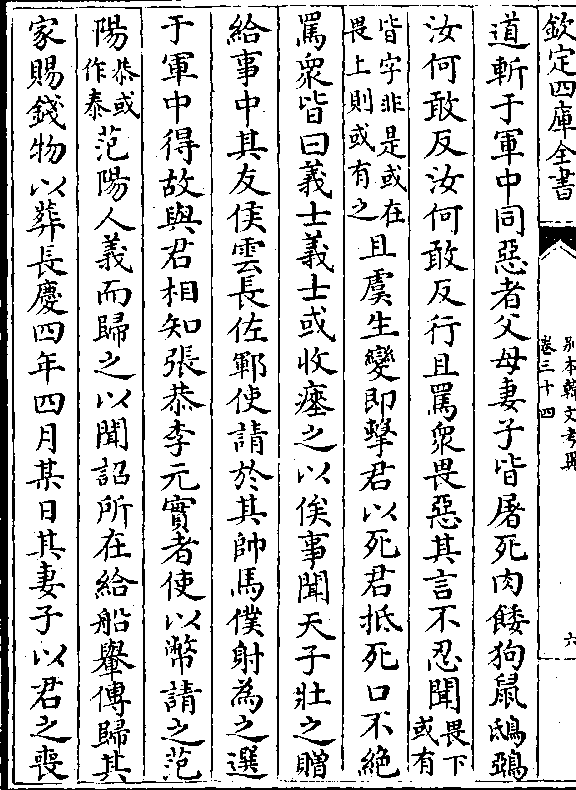 欽定四庫全書
別本韓文考異
卷三十四
六
道斬于軍中同惡者父母妻子皆屠死肉餧狗鼠鴟鵶
汝何敢反汝何敢反行且罵衆畏惡其言不忍聞畏下或有
皆字非是或在畏上則或有之且虞生變即擊君以死君抵死口不絶
罵衆皆曰義士義士或收瘞之以俟事聞天子壯之贈
給事中其友侯雲長佐鄆使請於其帥馬僕射為之選
于軍中得故與君相知張恭李元實者使以幣請之范
陽恭或作泰范陽人義而歸之以聞詔所在給船轝傳歸其
家賜錢物以葬長慶四年四月某日其妻子以君之喪